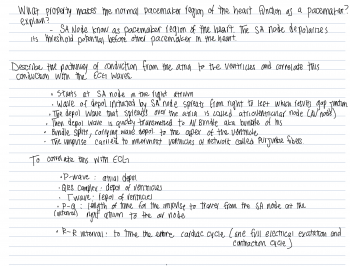 What property makes the normal pacemaker region of the heart function as a pacemaker?
explain?
- SA Node know as pacemaker region of the heart. The SA node depolarises
its threshold potential before other pacemaker in the heart.
Describe the pathway of conduction from the atria to the ventricles and correlate this
conduction with the ECG waves.
• Starts at SA node in the right atrium
• wave of depol initiated by SA node spreads from right to left which gap junction
• The depol wave that spreads over the atria is called atrioventricular node (AV node)
• Then depol wave is quickly transmitted to AV Bundle aka bundle of his
• Bundle split, carrying wave depol to the apex of the ventricle
• The impulse carried to innermost ventricles as network called Purjunke fibres.
To correlate this with ECG
• P-wave: atrial depol
• QRS Complex: depol of ventricles
• T wave: depol of ventricles
• P-Q: length of time for the impulse to travel from the SA node at the
(interval) right atrium to the av node.
• R-R interval: to time the entire cardiac cycle (one full electrical excitation and
contraction cycle)